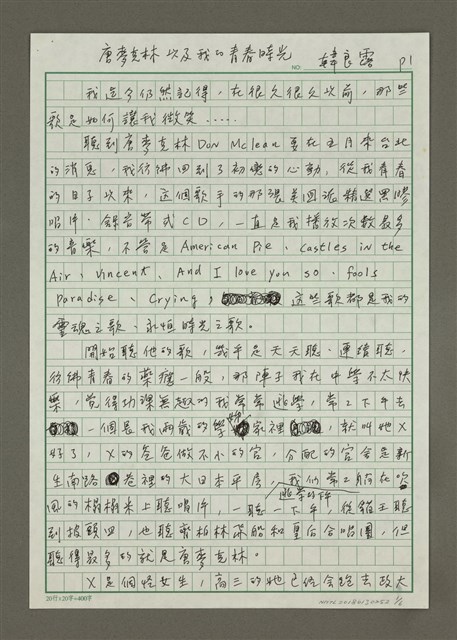 唐麥克林以及我的青春時光
NO. 韓良露 P1
我迄今仍然記得，在很久很久以前，那些
歌是如何讓我微笑……
聽到唐麥克林 Don Mclean 要在五月來台北
的消息，我彷彿回到了初戀的心動，從我青春
的日子以來，這個歌手的那張美國派精選黑膠
唱片、錄音帶或CD，一直是我播放次數最多
的音樂，不管是 American Pie、Castles in the
Air、Vincent、And I love you so、fools
Paradise、Crying，這些歌都是我的
靈魂之歌、永恒時光之歌。
開始聽他的歌，幾乎是天天聽、連續聽，
彷彿青春的藥癮一般，那陣子我在中學不太快
樂，覺得功課無趣的我常常逃學，常々下午去
一個長我兩歲的學姊家裡，就叫她X
好了，X的爸爸做不小的官，分配的官舍是新
生南路巷裡的大日本平房，我們常々窩在
逃學的時
的榻榻米上聽唱片，一聽一下午，從貓王聽
到披頭四，也聽齊柏林飛船和皇后合唱團，但
聽得最多的就是唐麥克林。
X是個怪女生，高三的她已經會跑去政大
20行×20字=400字